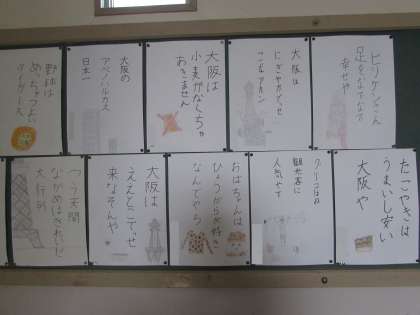 ビリケンさん
足をなでなで
幸せや
大阪は
にぎやかだっせ
大阪は
小麦がなくちゃ
あきません
大阪の
アベノハルカス
日本一
野球は
めっちゃつよい
タイガース
たこやきは
うまいし安い
大阪や
観光客に
人気やで
おばちゃんは
ひょうがら大好き
なんでやろ
大阪は
ええとこでっせ
来なそんや
つう天閣
ながめはきれいだ
大行列